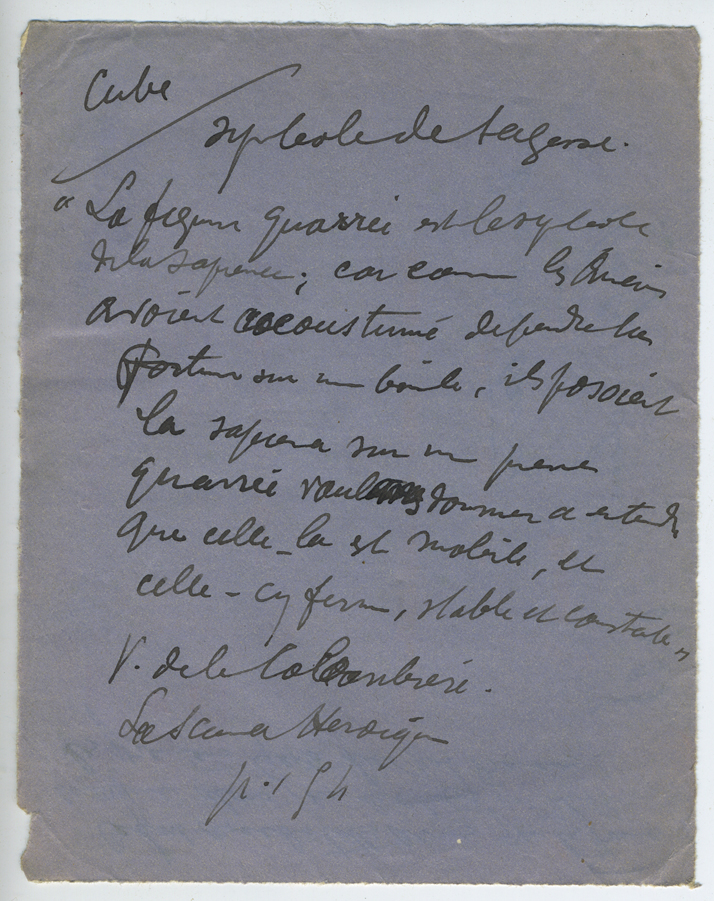 Cube
symbole de Sagesse.
" La figure quarrée est le symbole
de la sapience ; car comme les Anciens
avoient accoustumé de peindre la
Fortune sur une boule, ils posoient
la sapience sur une pierre
quarrée voulans donner a entendre
que celle-la est mobile, et
celle-cy ferme, stable et constante "
V. de la Colombière.
La Science Heroique
p. 154